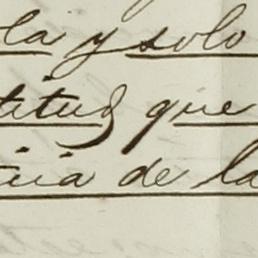 la y solo
titud que
cia de la